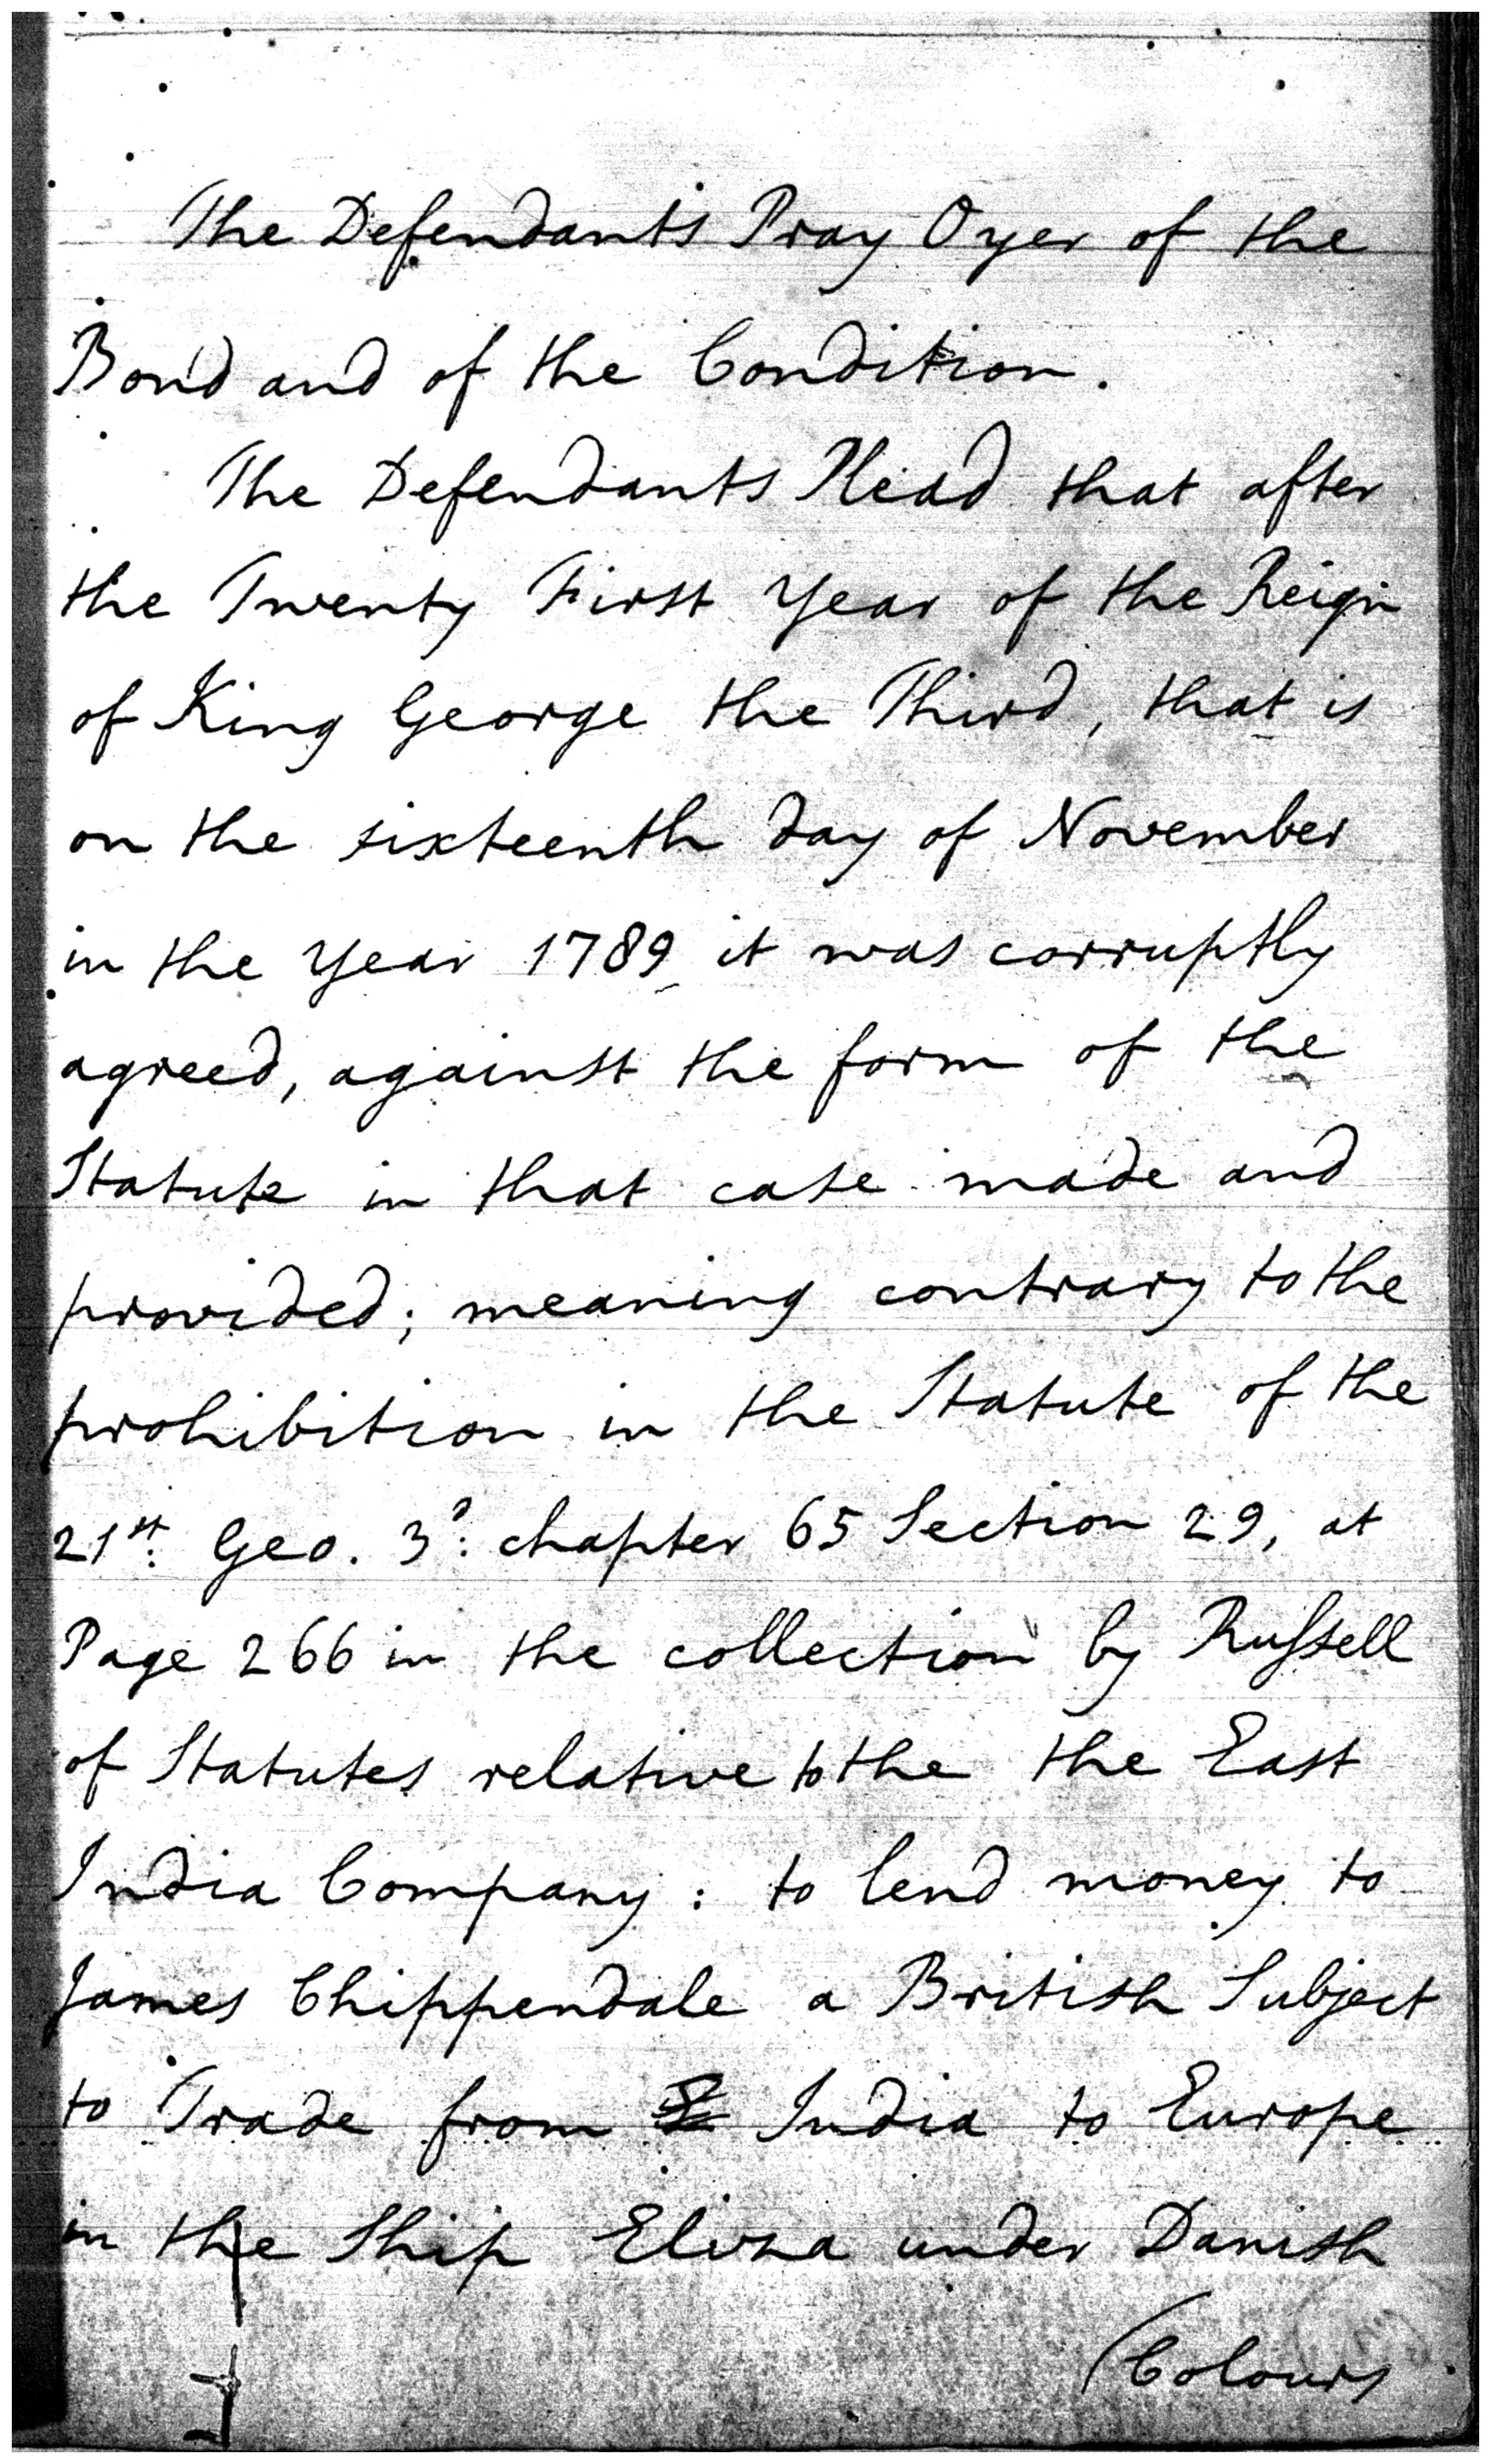 The Defendants Pray Oyer of the
Bond and of the Condition.
The Defendants Plead that after
the Twenty First Year of the Reign
of King George the Third, that is
on the sixteenth day of November
in the Year 1789 it was corruptly
agreed, against the form of the
Statute in that case made and
provided; meaning contrary to the
prohibition in the Statute of the
21st. Geo. 3d: chapter 65 Section 29, at
Page 266 in the collection by Russell
of Statutes relative to the the East
India Company: to lend money to
James Chippendale a British Subject
to Trade from India to Europe
in the Ship Eliza under Danish
(Colours